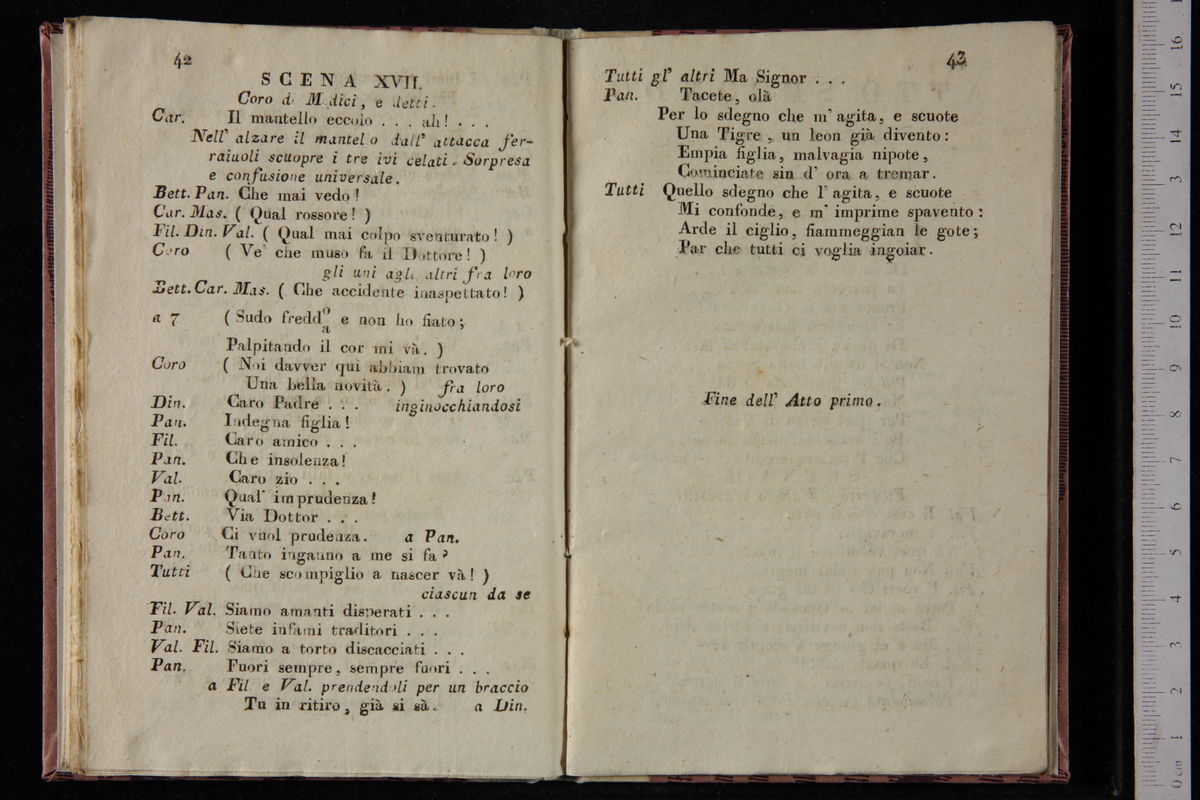 42
SCENA XVII.
Coro di Medici, e detti.
Car. Il mantello eccolo . . . ah! . . .
Nell' alzare il mantello dall' attacca fer-
raiuoli scuopre i tre ivi celati. Sorpresa
e confusione universale.
Bett. Pan. Che mai vedo!
Car. Mas. ( Qual rossore! )
Fil. Din. Val. ( Qual mai colpo sventurato! )
Coro ( Ve' che muso fa il Dottore! )
gli uni agli altri fra loro
Bett. Car. Mas. ( Che accidente inaspettato! )
a 7 ( Sudo freddo/a e non ho fiato;
Palpitando il cor mi và. )
Coro ( Noi davver quì abbiam trovato
Una bella novità. ) fra loro
Din. Caro Padre . . . inginocchiandosi
Pan. Indegna figlia!
Fil. Caro amico . . .
Pan. Che insolenza!
Val. Caro zio . . .
Pan. Qual' imprudenza!
Bett. Via Dottor . . .
Coro Ci vuol prudenza. a Pan.
Pan. Tanto inganno a me si fa?
Tutti ( Che scompiglio a nascer và! )
ciascun da se
Fil. Val. Siamo amanti disperati . . .
Pan. Siete infami traditori . . .
Val. Fil. Siamo a torto discacciati . . .
Pan. Fuori sempre, sempre fuori . . .
a Fil. e Val. prendendoli per un braccio
Tu in ritiro, già si sà. a Din.
43
Tutti gl' altri Ma Signor . . .
Pan. Tacete, olà
Per lo sdegno che m' agita, e scuote
Una Tigre, un leon già divento:
Empia figlia, malvagia nipote,
Cominciate sin d' ora a tremar.
Tutti Quello sdegno che l' agita, e scuote
Mi confonde, e m' imprime spavento:
Arde il ciglio, fiammeggian le gote;
Par che tutti ci voglia ingoiar.
Fine dell' Atto primo.
0 cm 1 2 3 4 5 6 7 8 9 10 11 12 13 14 15 16